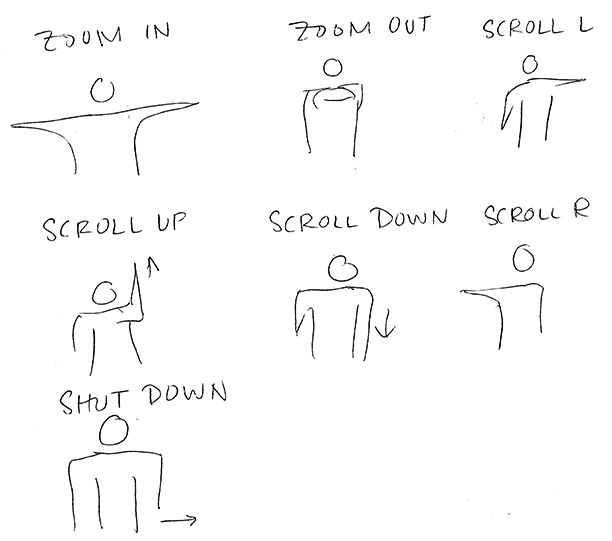 ZOOM IN
ZOOM OUT
SCROLL L
SCROLL UP
SCROLL DOWN
SCROLL R
SHUT DOWN